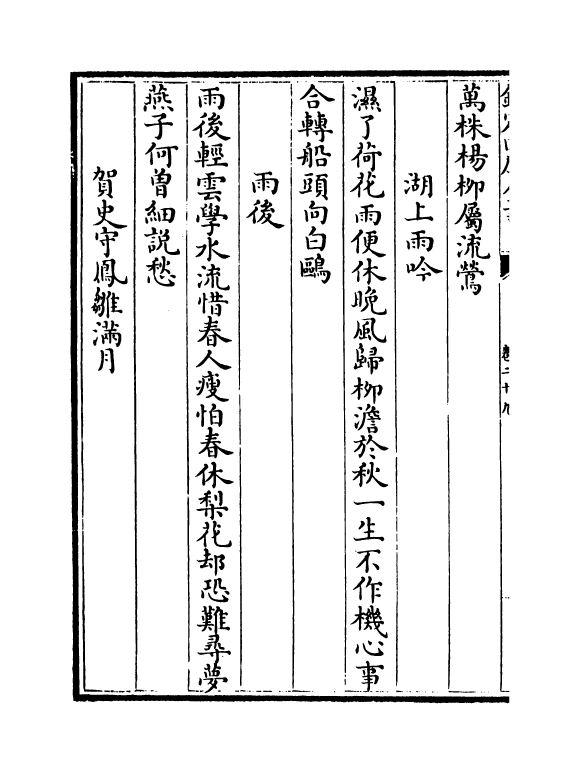 萬株楊柳屬流鶯
湖上雨吟
濕了荷花雨便休晚風歸柳澹於秋一生不作機心事
合轉船頭向白鷗
雨後
雨後輕雲學水流惜春人瘦怕春休梨花却恐難尋夢
燕子何曽細説愁
賀史守鳳雛滿月